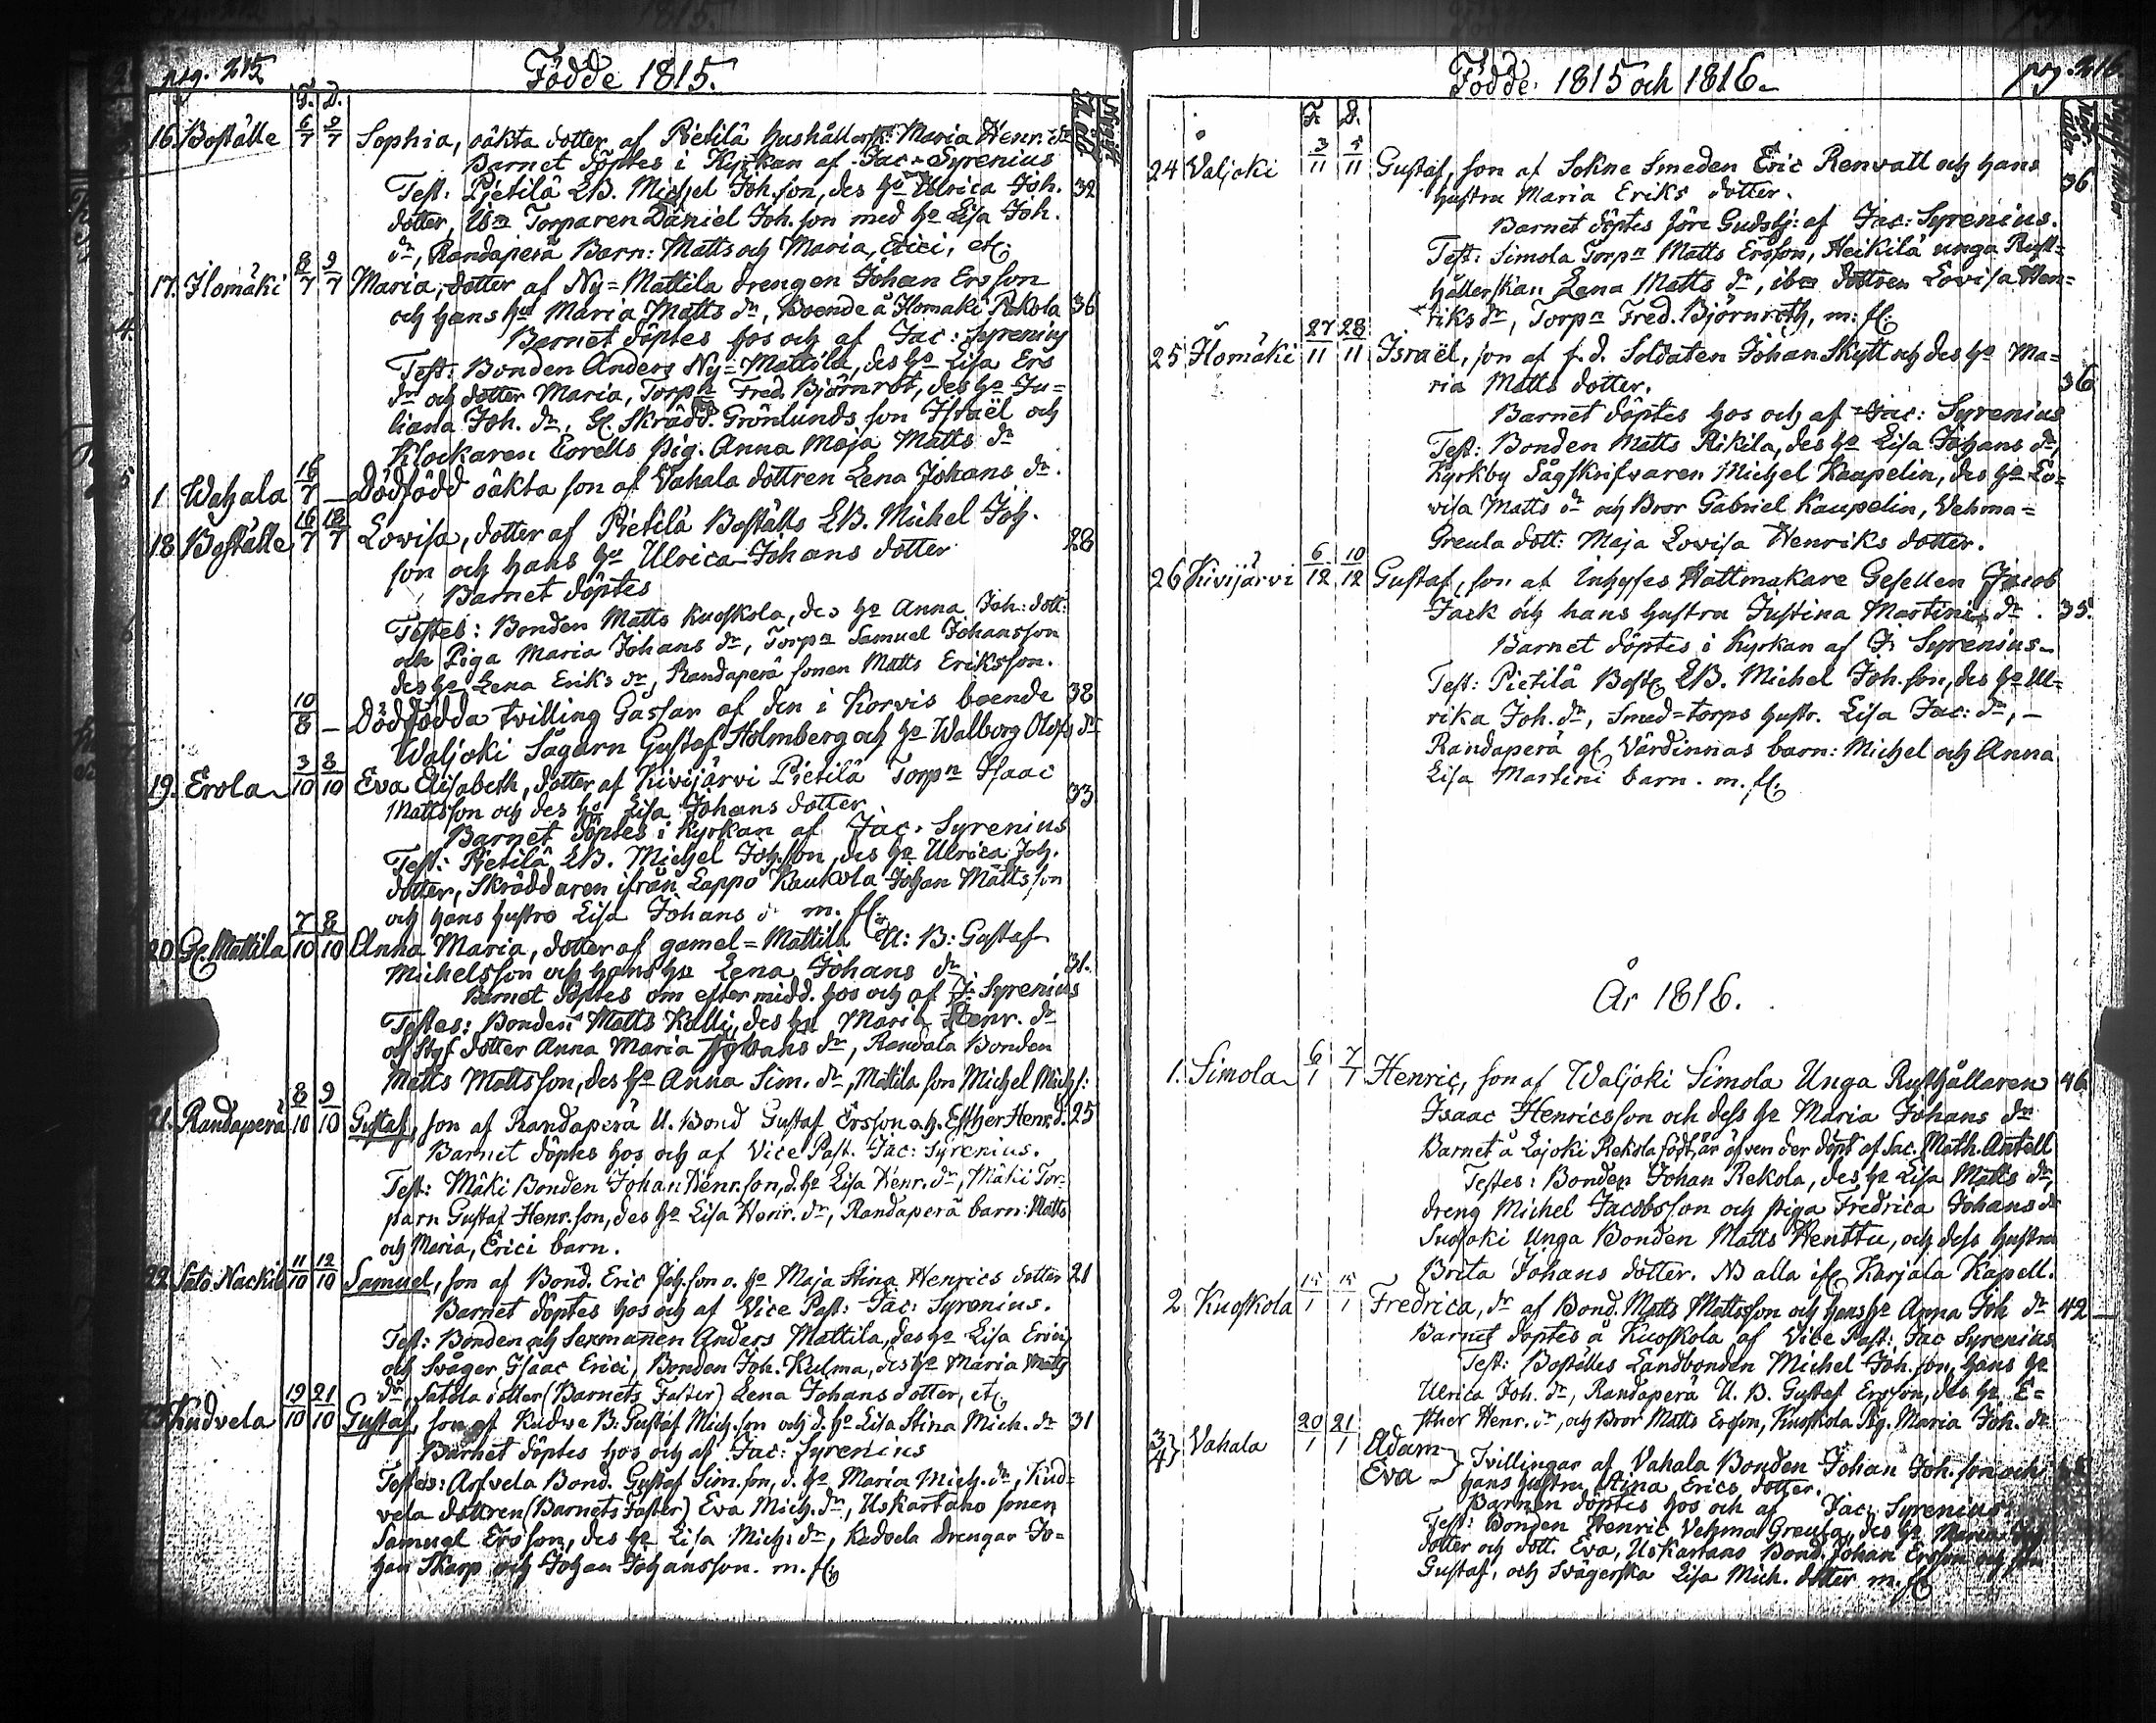 pag. 215
Födde 1815.
F. D.
16. Boställe 6/7 9/7 Sophia, oäkta dotter af Pietilä hushållersk: Maria Henr. dr
Barnet döptes i Kyrkan af Jac: Syrenius
Test: Pietilä LB. Michel Joh.son, des ho Ulrica Joh. 32
dotter, Torparen Daniel Joh.son med ho Lisa Joh.
dr, Randaperä Barn: Matts och Maria, Erici, etc.
17. Ilomäki 8/7 9/7 Maria, dotter af Ny=Mattila drengen Johan Ersson
och hans hu Maria Matts dr, Boende å Ilomäki Rekola 36
Barnet döptes hos och af Jac: Syrenius
Test: Bonden Anders Ny=Mattila, des ho Lisa Ers
dr och dotter Maria, Torpn Fred. Björnrot, des ho Ju=
liana Joh. dr, Sk. Skrädd. Grönlunds son Israël och
Klockaren Eorells pig. Anna Maja Matts dr
1 Wahala 16/7 — Dödfödd oäkta son af Vahala dottren Lena Johans dr.
18 Boställe 16/7 18/7 Lovisa, dotter af Pietilä Boställs LB. Michel Joh. 28
son och hans ho Ulrica Johans dotter
Barnet döptes
Testes: Bonden Matts Kuoskola, des ho Anna Joh: dott:
och Piga Maria Johans dr, Torpn Samuel Johansson
des ho Lena Eriks dr, Randaperä sonen Matts Eriksson.
10/8 — Dödfödda tvilling Gossar af den i Korvis boende 38
Waljoki Sågarn Gustaf Holmberg och ho Walborg Olofs dr
19. Erola 3/10 8/10 Eva Elisabeth, dotter af Kivijärvi Pietilä Torpn Isaac
Mattsson och des ho Lisa Johans dotter 33
Barnet döptes i Kyrkan af Jac: Syrenius
Test: Pietilä LB. Michel Joh.son, des ho Ulrica Joh.
dotter, Skräddaren ifrån Lappo Kaukola Johan Mattsson
och hans hustro Lisa Johans d m. fl.
20 Gl. Mattila 7/10 8/10 Anna Maria, dotter af gamel=Mattila U: B: Gustaf
Michelsson och hans hu Lena Johans dr 31.
Barnet döptes om eftermidd. hos och af J: Syrenius
Testes: Bonden Matts Kalli, des hu Maria Henr. dr
och Styf dotter Anna Maria Johans dr, Randala Bonden
Matts Mattsson, des ho Anna Sim. dr, Matila son Michel Mich.s:
21. Randaperä 8/10 9/10 Gustaf, son af Randaperä U. Bond Gustaf Ersson o.h. Esther Henr.d. 25
Barnet döptes hos och af Vice Past. Jac: Syrenius.
Test: Mäki Bonden Johan Henr.son, d. ho Lisa Henr. dr, Mäki Tor-
parn Gustaf Henr.son, des ho Lisa Henr. dr, Randaperä barn: Matts
och Maria, Erici barn.
22. Sato Nackila 11/10 12/10 Samuel, son af Bond. Eric Joh.son o. ho Maja Stina Henrics dotter 21
Barnet döptes hos och af Vice Past: Jac: Syrenius.
Test: Bonden och Sexmannen Anders Mattila, des ho Lisa Erici
och Svåger Isaac Erici, Bonden Joh. Kulma, des ho Maria Matts
dr, Satola dotter (Barnets Faster) Lena Johans dotter, etc.
Kudvela 19/10 21/10 Gustaf, son af Kudwe B: Gustaf Mich.son och d. ho Lisa Stina Mich. dr 31
Barnet döptes hos och af Jac: Syrenius
Testes: Arfvela Bond. Gustaf Sim.son, d. ho Maria Mich. dr, Kud=
vela dottren (Barnets Faster) Eva Mich. dr, Uskartano sonen
Samuel Ersson, des ho Lisa Mich: dr, Kudvela drengar Jo=
han Skarp och Johan Johansson. m. fl.
Födde 1815 och 1816.
pag. 216
F. D.
24 Valjoki 3/11 5/11 Gustaf, son af Sohne Smeden Eric Renvall och hans
hustru Maria Eriks dotter. 36
Barnet döptes före Gudstj: af Jac: Syrenius.
Test: Simola Torpn Matts Ersson, Heikilä unga Rust=
hållerskan Lena Matts dr, ibm dottren Lovisa Hen=
riks dr, Torpn Fred. Björnroth, m: fl.
25 Ilomäki 27/11 28/11 Israël, son af f.d. Soldaten Johan Skytt och des ho Ma=
ria Matts dotter. 36
Barnet döptes hos och af Jac: Syrenius
Test: Bonden Matts Rikila, des ho Lisa Johans dr,
Kyrkby Sågskrifvaren Michel Kaupelin, des ho Lo=
visa Matts dr och Bror Gabriel Kaupelin, Vehma=
Greula dott: Maja Lovisa Henriks dotter.
26 Kivijärvi 6/12 10/12 Gustaf, son af Inhyses Hattmakare Gesellen Jacob
Jack och hans hustru Justina Martini dr. 35.
Barnet döptes i Kyrkan af J: Syrenius
Test: Pietilä Bost. LB. Michel Joh.son, des ho Ul=
rika Joh. dr, Smed=torps hustr. Lisa Jac: dr, —
Randaperä gl. Värdinnas barn: Michel och Anna
Lisa Martini barn. m. fl.
År 1816.
1. Simola 6/1 7/1 Henric, son af Waljoki Simola Unga Rusthållaren 46
Isaac Henricsson och dess ho Maria Johans dr
Barnet å Lajoki Rekola födt, är äfven der döpt af Sac. Math. Antell
Testes: Bonden Johan Rekola, des ho Lisa Matts dr,
dreng Michel Jacobsson och piga Fredrica Johans dr
Suojoki Unga Bonden Matts Henttu, och dess hustru
Brita Johans dotter. NB alla if. Karjala Kapell.
2 Kuoskola 15/1 15/1 Fredrica, dr af Bond. Matts Mattsson och hans ho Anna Joh dr 42
Barnet döptes å Kuoskola af Vice Past: Jac Syrenius
Test: Boställes Landbonden Michel Joh.son, hans ho
Ulrica Joh. dr, Randaperä U. B. Gustaf Ersson, des ho E=
sther Henr. dr, och Bror Matts Ersson, Kuoskola Pig. Maria Joh. dr
3 4} Vahala 20/1 21/1 Adam
Eva } Tvillingar af Vahala Bonden Johan Joh.son och
hans hustru Stina Erics dotter.
Barnen döptes hos och af Jac: Syrenius
Test: Bonden Henric Vehma Greula, des ho Maria
dotter och dott. Eva, Uskartano Bond. Johan Ersson och son
Gustaf, och Svägerska Lisa Mich. dotter m. fl.